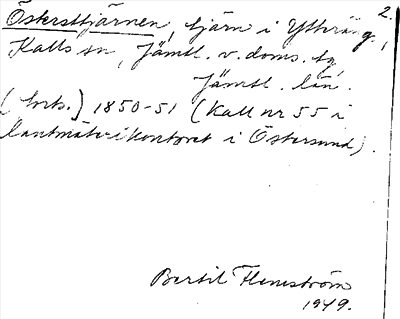 2.
Östersttjärnen, tjärn i Ytteräng,
Kalls sn, Jämtl. v. doms. tg,
Jämtl. län.
(Avb.) 1850-51 (Kall nr 55 i
lantmäterikontoret i Östersund).
Bertil Flemström
1949.